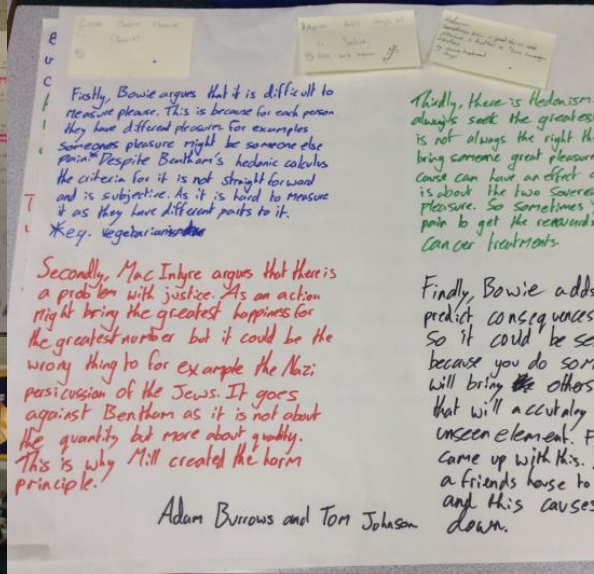 Firstly, Bowie argues that it is difficult to
measure pleasure. This is because for each person
they have different pleasures for examples
someones pleasure might be someone else
pain* Despite Bentham's hedonic calculus
the criteria for it is not straight forward
and is subjective. As it is hard to measure
it as they have different parts to it.
*e.g. vegetarians
Secondly, Mac Intyre argues that there is
a problem with justice. As an action
might bring the greatest happiness for
the greatest number but it could be the
wrong thing to for example the Nazi
persicussion of the Jews. It goes
against Bentham as it is not about
the quantity but more about quality.
This is why Mill created the harm
principle.
Thirdly, there is Hedonism
always seek the greatest
is not always the right
bring someone great pleasure
cause can have an effect
is about the two
pleasure. So sometimes
pain to get the rewards
cancer treatments.
Finally, Bowie adds
predict consequences
So it could be
because you do
will bring others
that will accutaley
unseen element.
came up with this.
a friends house to
and this causes
down.
Adam Burrows and Tom Johnson